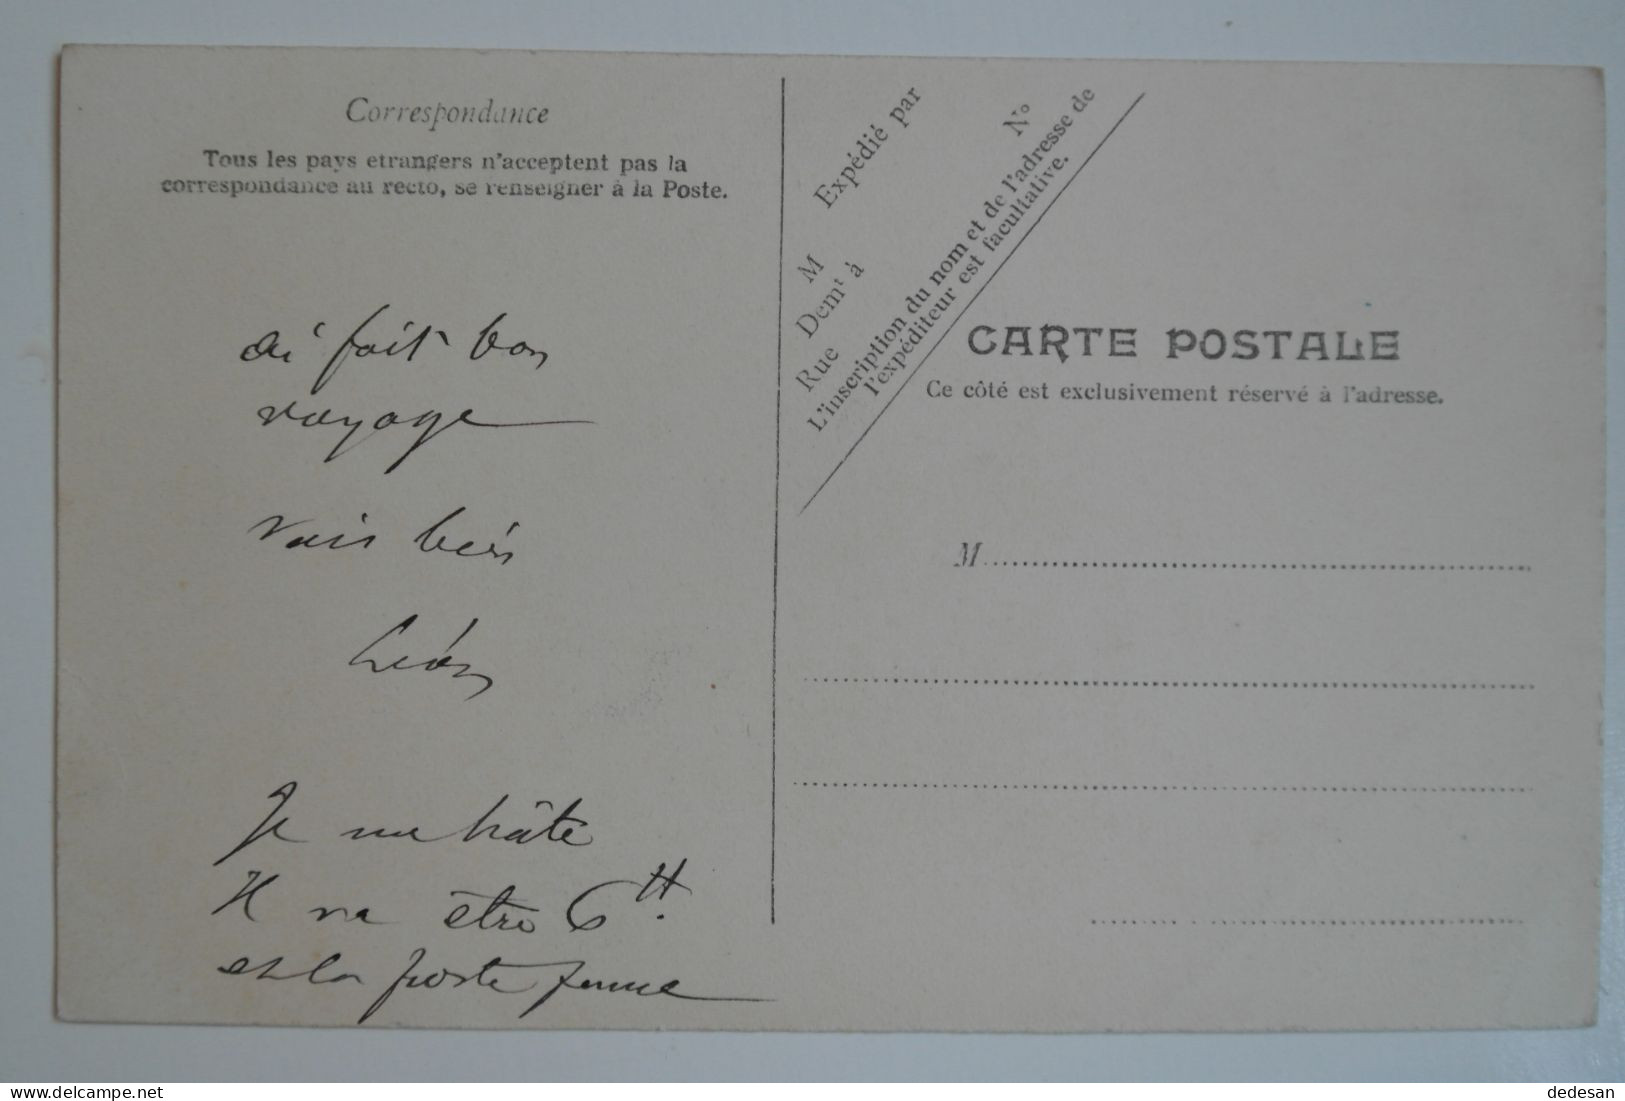 Correspondance
Tous les pays etrangers n'acceptent pas la
correspondance au recto, se renseigner à la Poste.
ai fait bon
voyage
vais bien
Léon
Je me hâte
Il va être 6 H.
et la poste ferme
Expédié par
M
Demt à
Rue
No
L'inscription du nom et de l'adresse de
l'expéditeur est facultative.
CARTE POSTALE
Ce côté est exclusivement réservé à l'adresse.
M
delcampe.net
dedesan